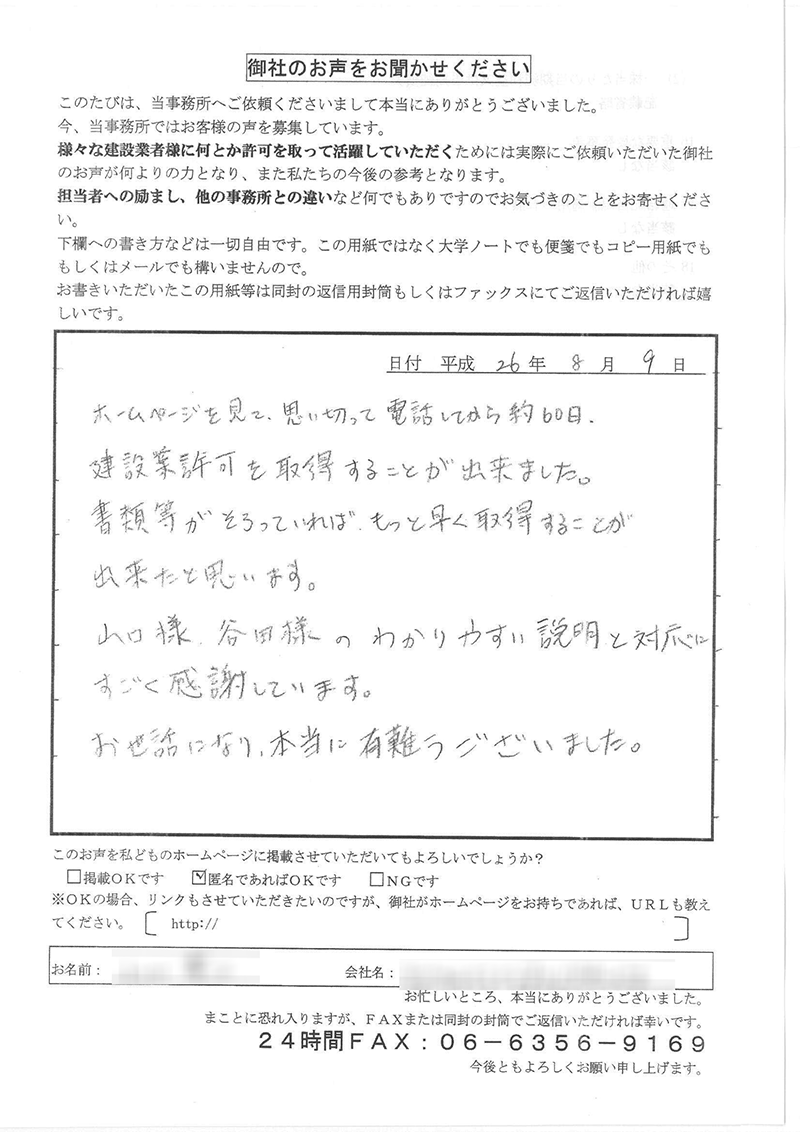 御社のお声をお聞かせください
このたびは、当事務所へご依頼くださいまして本当にありがとうございました。
今、当事務所ではお客様の声を募集しています。
様々な建設業者様に何とか許可を取って活躍していただくためには実際にご依頼いただいた御社
のお声が何よりの力となり、また私たちの今後の参考となります。
担当者への励まし、他の事務所との違いなど何でもありですのでお気づきのことをお寄せくださ
い。
下欄への書き方などは一切自由です。この用紙ではなく大学ノートでも便箋でもコピー用紙でも
もしくはメールでも構いませんので。
お書きいただいたこの用紙等は同封の返信用封筒もしくはファックスにてご返信いただければ嬉
しいです。
日付 平成 26 年 8 月 9 日
ホームページを見て、思い切って電話してから約60日、
建設業許可を取得することが出来ました。
書類等がそろっていれば、もっと早く取得することが
出来たと思います。
山口様、谷田様のわかりやすい説明と対応に
すごく感謝しています。
お世話になり、本当に有難うございました。
このお声を私どものホームページに掲載させていただいてもよろしいでしょうか？
□掲載OKです ☑匿名であればOKです □NGです
※OKの場合、リンクもさせていただきたいのですが、御社がホームページをお持ちであれば、URLも教え
てください。[ http:// ]
お名前： 会社名：
お忙しいところ、本当にありがとうございました。
まことに恐れ入りますが、FAXまたは同封の封筒でご返信いただければ幸いです。
24時間FAX：06-6356-9169
今後ともよろしくお願い申し上げます。